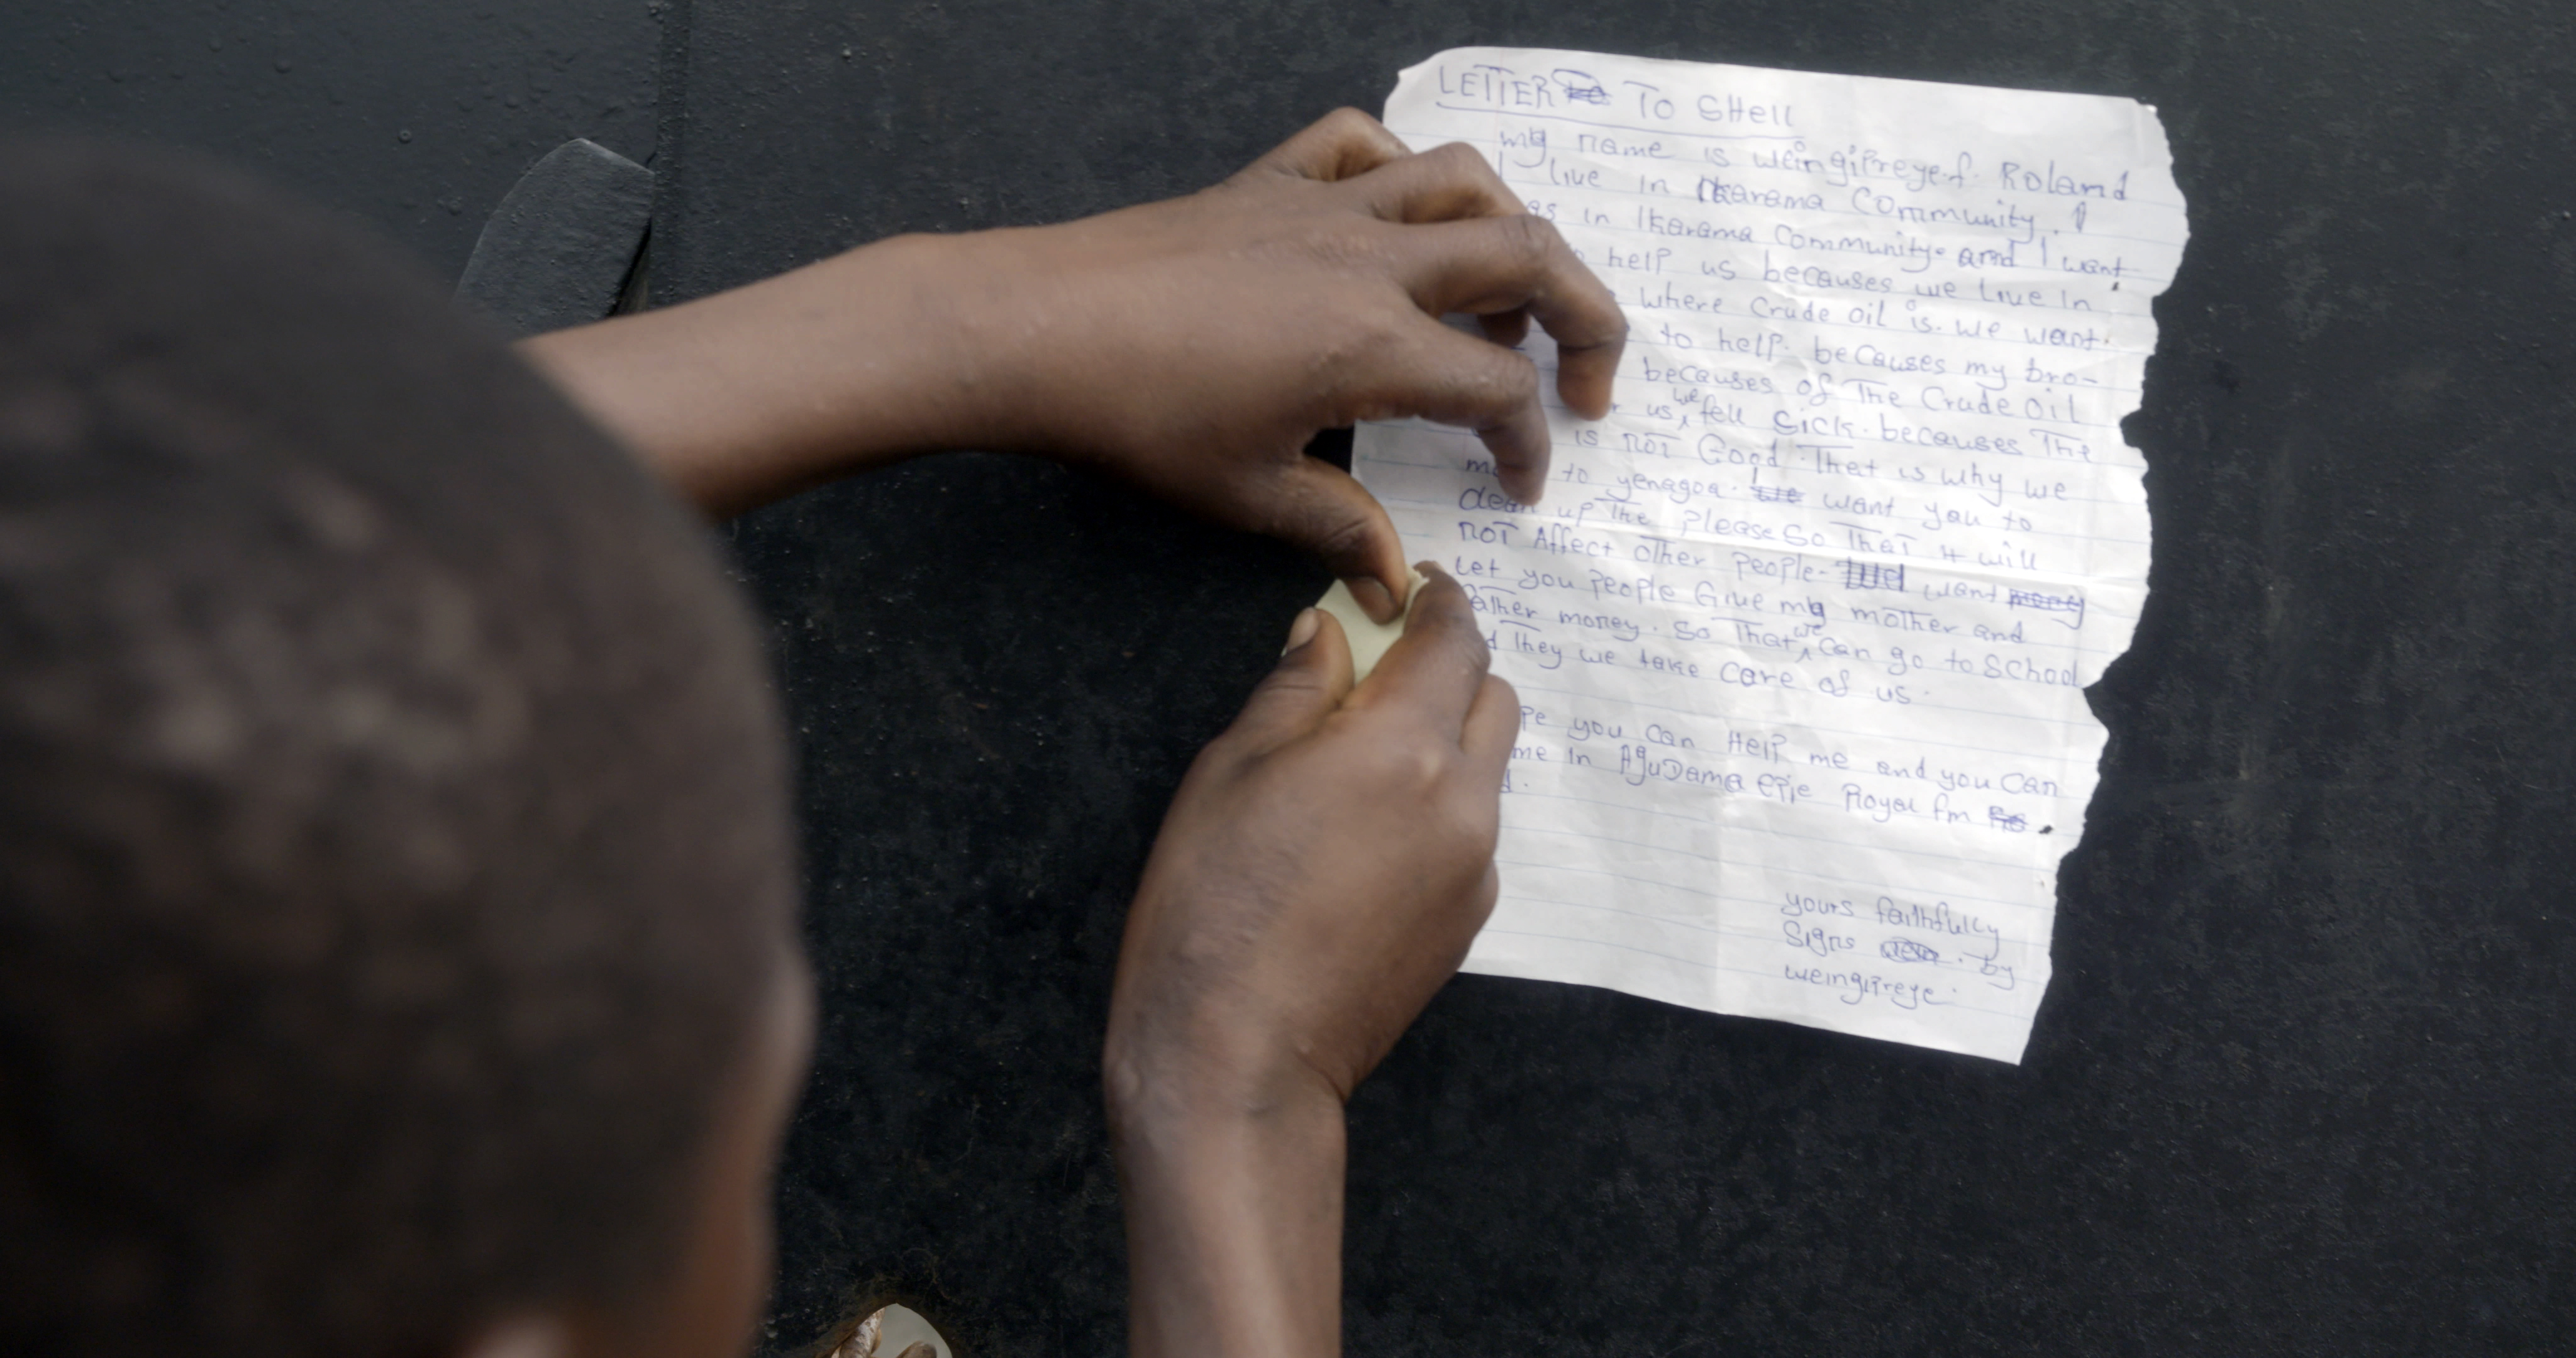 LETTER TO SHell
my name is weingipreye.f. Roland
I live in Ikarama Community. I
in Ikarama Community. and I want
help us becauses we live In
where Crude oil is. we want.
to help. becauses my bro-
becauses of The Crude oil
us, we fell Sick. becauses The
is noT Good. That is why we
to yenagoa. I want you to
clean up The please So ThaT it will
noT Affect oTher people- want
Let you people Give my moTher and
money. So ThaT we Can go to School
They we take Care of us.
you Can Help me and you Can
me In AguDama Epie Royal fm
yours faithfully
Signs . by
weingipreye.